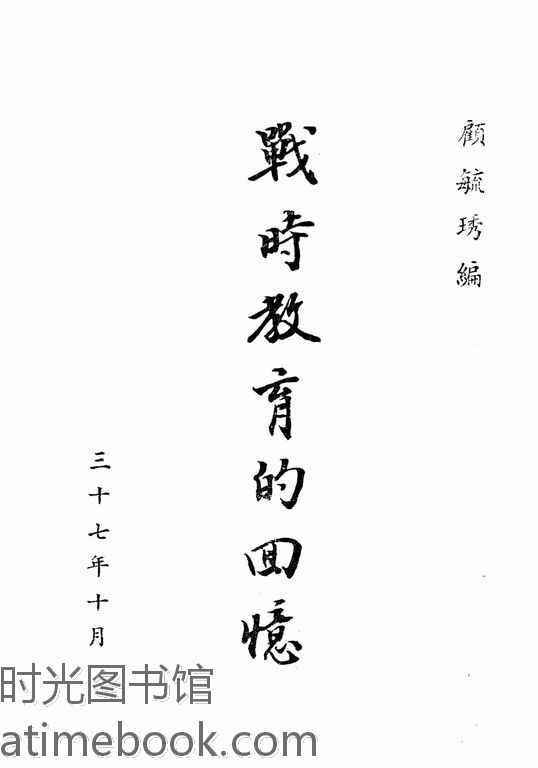 顧毓琇編
戰時教育的回憶
三十七年十月
时光图书馆
atimebook.com